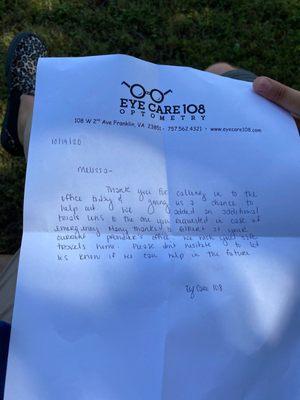 EYE CARE 108
OPTOMETRY
108 W 2nd Ave Franklin, VA 23851 • 757.562.4321 • www.eyecare108.com
10/19/20
Melissa-
Thank you for calling in to the
office today & giving us a chance to
help out. We added an additional
trials lens to the one you requested in case of
emergency. Many thanks to at your
current office. We wish you safe
travels home. Please don't hesitate to let
us know if we can help in the future
Eye Care 108